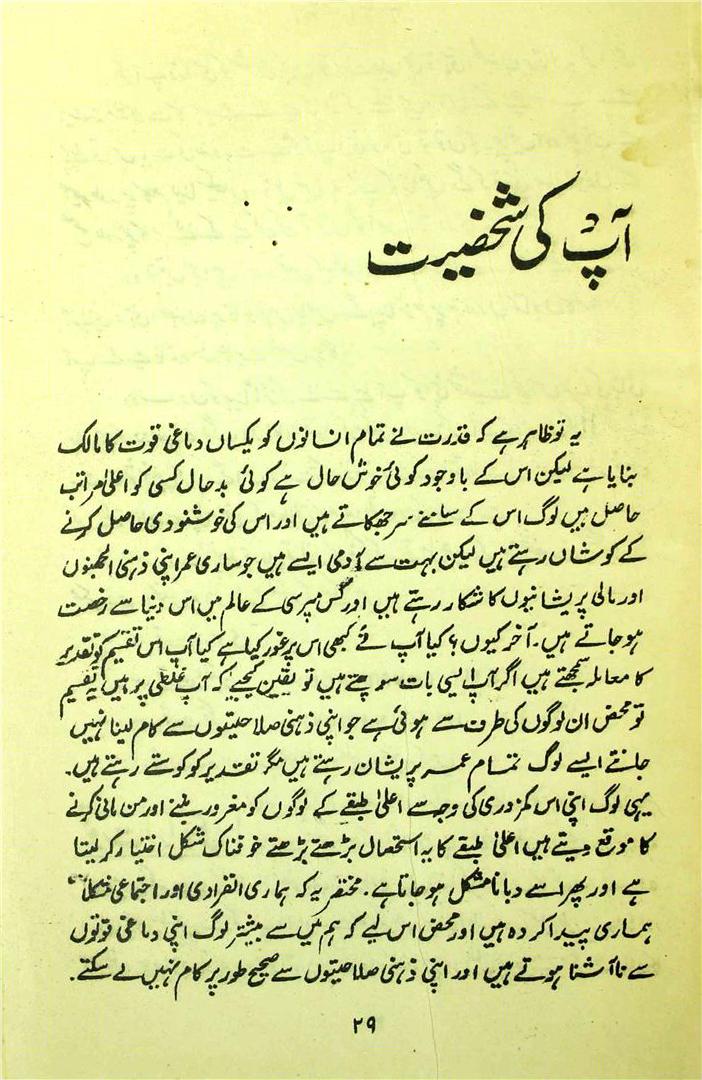 آپ کی شخصیت
یہ تو ظاہر ہے کہ قدرت نے تمام انسانوں کو یکساں دماغی قوت کا مالک
بنایا ہے لیکن اس کے باوجود کوئی خوش حال ہے کوئی بدحال کسی کو اعلیٰ مراتب
حاصل ہیں لوگ اس کے سامنے سر جھکاتے ہیں اور اس کی خوشنودی حاصل کرنے
کے کوشاں رہتے ہیں لیکن بہت سے آدمی ایسے ہیں جو ساری عمر اپنی ذہنی الجھنوں
اور مالی پریشانیوں کا شکار رہتے ہیں اور کس مپرسی کے عالم میں اس دنیا سے رخصت
ہو جاتے ہیں۔ آخر کیوں؟ کیا آپ نے کبھی اس پر غور کیا ہے کیا آپ اس تقسیم کو تقدیر
کا معاملہ سمجھتے ہیں اگر آپ ایسی بات سوچتے ہیں تو یقین کیجیے کہ آپ غلطی پر ہیں یہ تقسیم
تو محض ان لوگوں کی طرف سے ہوئی ہے جو اپنی ذہنی صلاحیتوں سے کام لینا نہیں
جانتے ایسے لوگ تمام عمر پریشان رہتے ہیں مگر تقدیر کو کوستے رہتے ہیں۔
یہی لوگ اپنی اس کمزوری کی وجہ سے اعلیٰ طبقے کے لوگوں کو مغرور بننے اور من مانی کرنے
کا موقع دیتے ہیں اعلیٰ طبقے کا یہ استحصال بڑھتے بڑھتے خوفناک شکل اختیار کر لیتا
ہے اور پھر اسے دبانا مشکل ہو جاتا ہے۔ مختصر یہ کہ ہماری انفرادی اور اجتماعی مشکلات
ہماری پیدا کردہ ہیں اور محض اس لیے کہ ہم میں سے بیشتر لوگ اپنی دماغی قوتوں
سے ناآشنا ہوتے ہیں اور اپنی ذہنی صلاحیتوں سے صحیح طور پر کام نہیں لے سکتے۔
۲۹